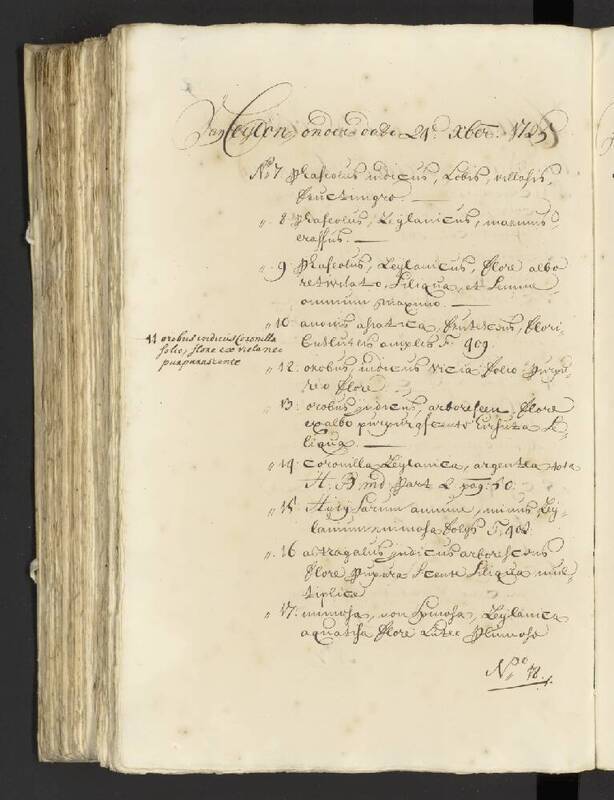 Van Ceylon, onder dato 21: Xber: 1725
No 7. Phaseolus, indicus, Lobis, villosis,
fructu nigro. —
„ 8 Phaseolus, Zeylanicus, maximus
crassus. —
„ 9 Phaseolus, Zeylanicus, flore albo
Siliqua, et Semine
omnium maximo. —
„ 10 asiatica, frutescens, flori-
bus luteis amplis F. 409.
11 orobus indicus Coronilla
folio, flore ex violaceo
purpurascente
„ 12. orobus, indicus vicia folio purpu-
reo flore
„ 13. orobus, indicus, arborescen flore
ex albo purpurascente hirsuta Si-
liqua. —
„ 14. Coronilla Zeylanica, argentea tota
H. B. md: Part 2. pag: 50.
„ 15. Hedysarum annuum, minus Zey-
lanicum mimosa folys F. 402
„ 16 astragalus indicus arborescens
flore pupura Scente Siliqua mul-
tiplice
„ 17. mimosa, non Spinosa, Zeylanica
aquatica flore Luteo plumoso
No 18.